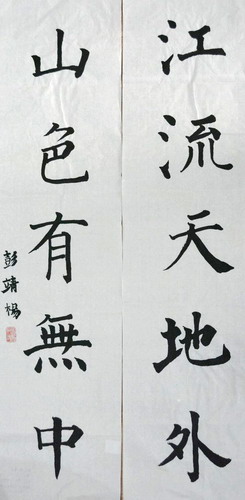 江流天地外
山色有無中
彭靖楊